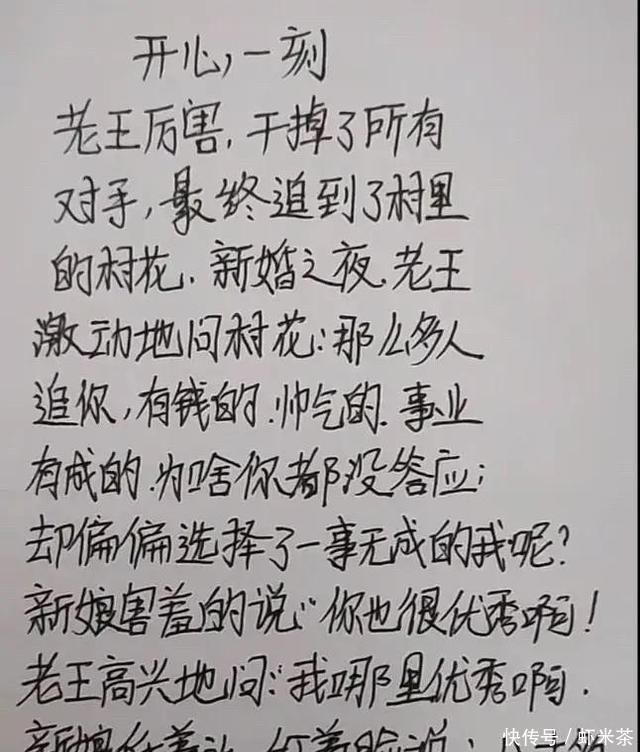 开心,一刻
老王厉害,干掉了所有
对手,最终追到了村里
的村花.新婚之夜.老王
激动地问村花:那么多人
追你,有钱的.帅气的.事业
有成的.为啥你都没答应;
却偏偏选择了一事无成的我呢?
新娘害羞的说:“你也很优秀啊!
老王高兴地问:“我哪里优秀啊.
新娘
红着脸说:
快传号/虾米茶